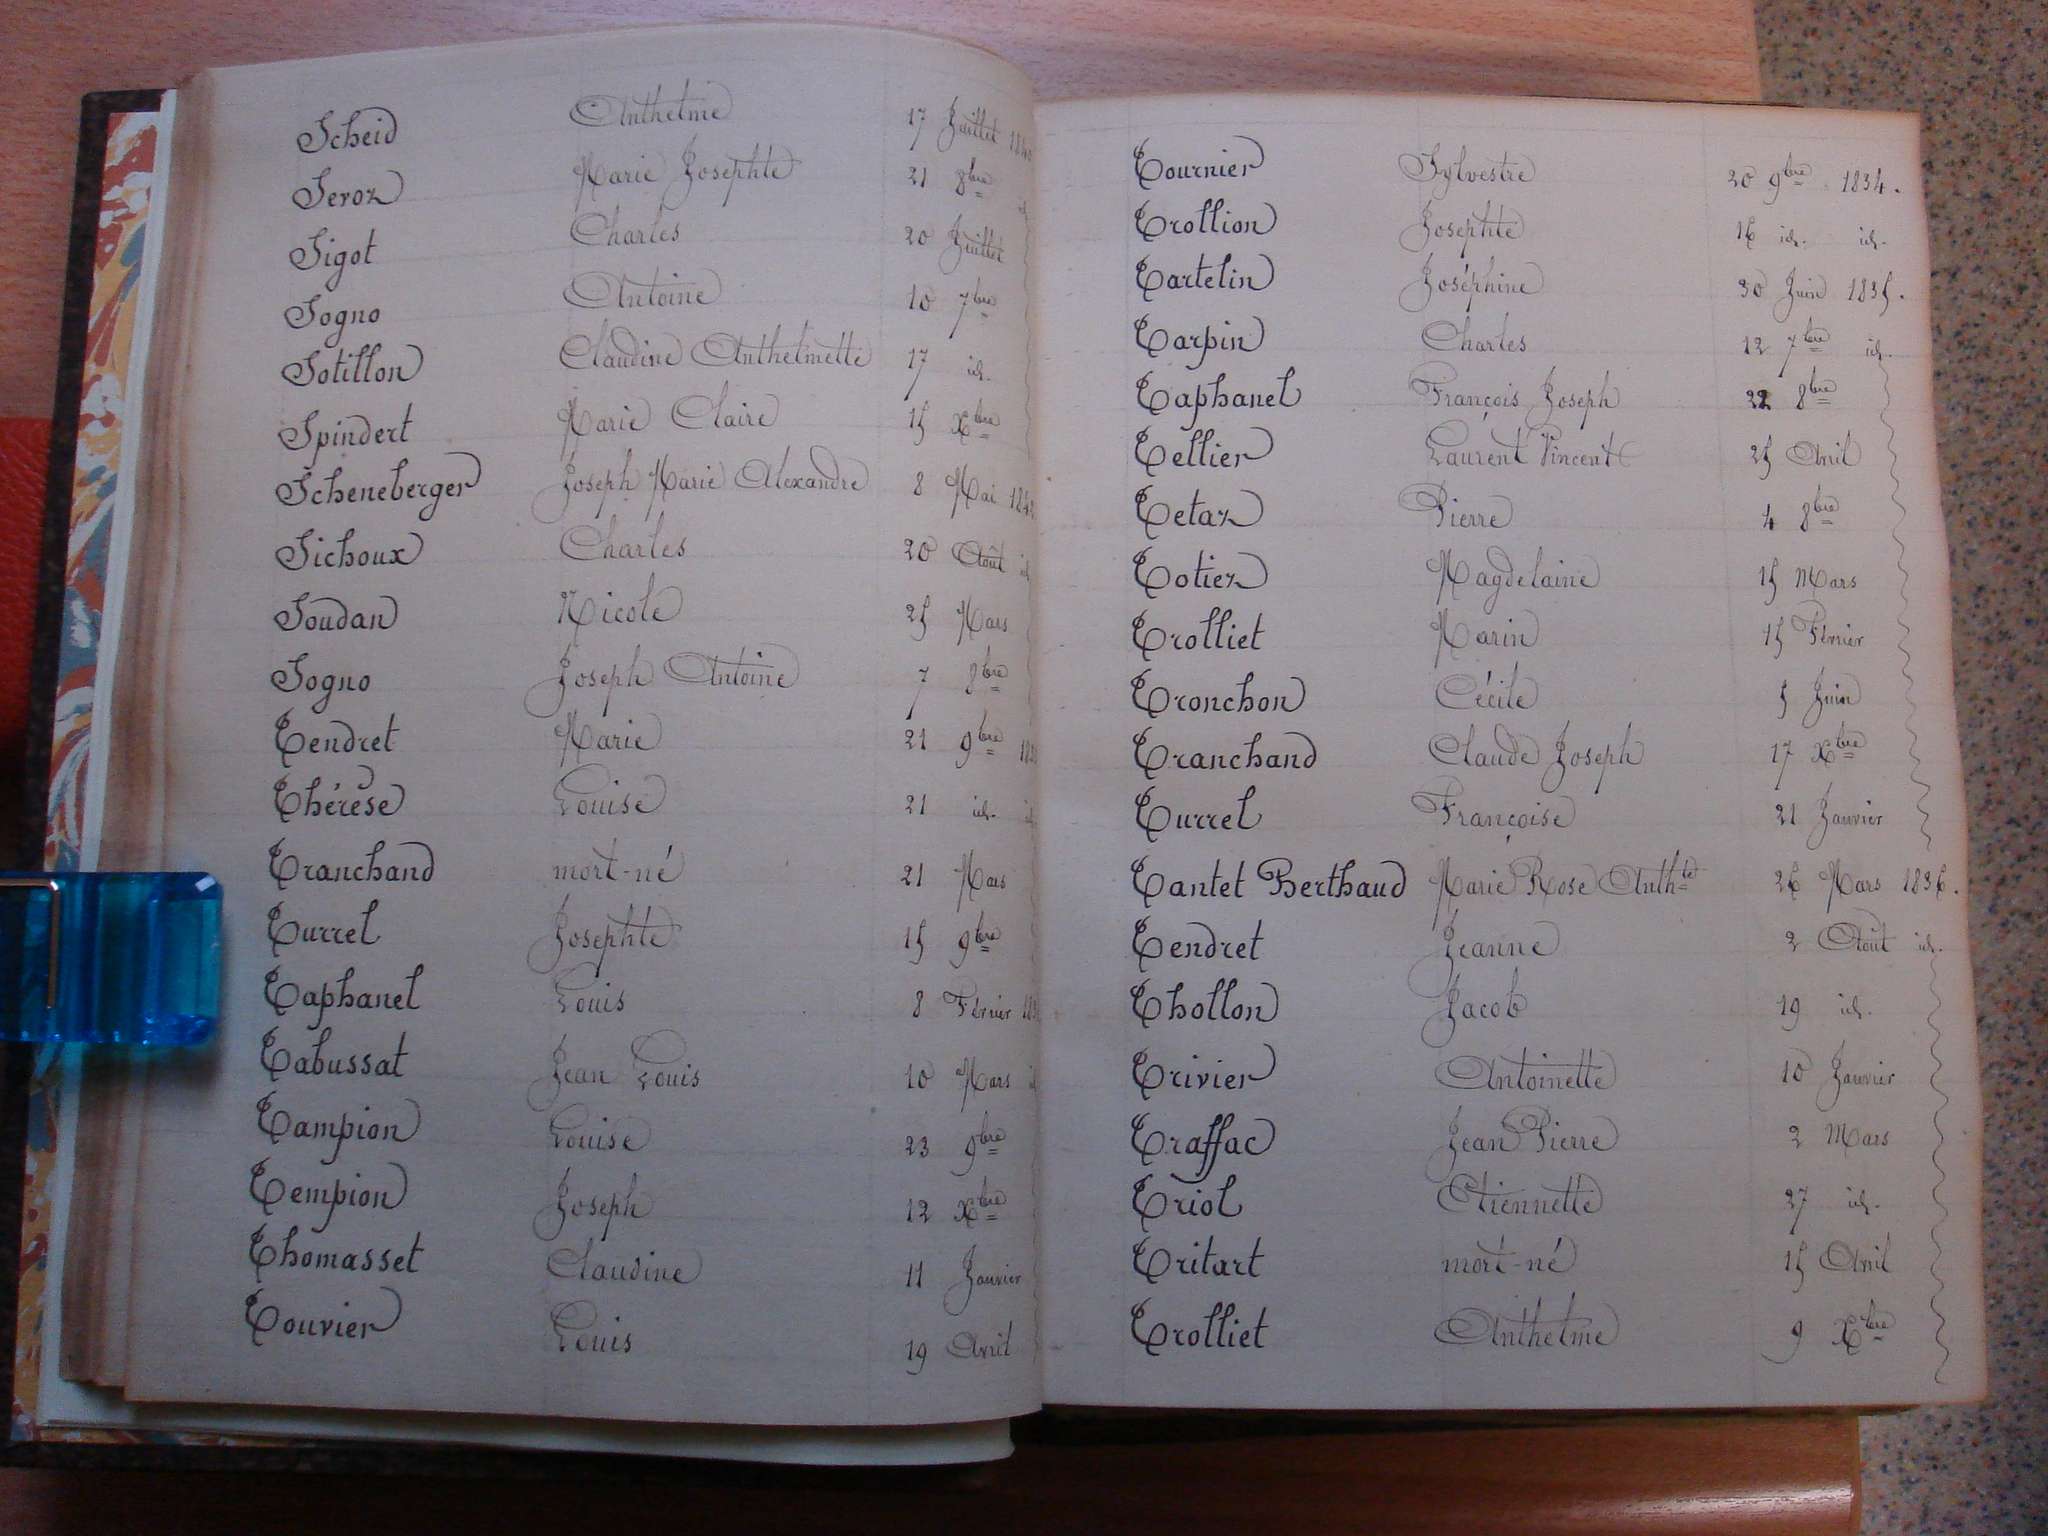 Scheid Anthelme 17 Juillet 1840
Seroz Marie Josephte 21 8bre id
Sigot Charles 20 Juillet
Sogno Antoine 10 7bre
Sotillon Claudine Anthelmette 17 id.
Spindert Marie Claire 15 Xbre
Scheneberger Joseph Marie Alexandre 8 Mai
Sichoux Charles 20 Août id
Soudan Nicole 25 Mars
Sogno Joseph Antoine 7 8bre
Tendret Marie 21 9bre
Thérèse Louise 21 id. id
Tranchand mort-né 21 Mars
Turrel Josephte 15 9bre
Taphanel Louis 8 Février
Tabussat Jean Louis 10 Mars
Tampion Louise 23 9bre
Tempion Joseph 12 Xbre
Thomasset Claudine 11 Janvier
Touvier Louis 19 Avril
Tournier Sylvestre 20 9bre 1834.
Trollion Josephte 16 id. id.
Tartelin Joséphine 30 Juin 1835.
Tarpin Charles 12 7bre id.
Taphanel François Joseph 22 8bre
Tellier Laurent Vincent 25 Avril
Tetaz Pierre 4 8bre
Totiez Magdelaine 15 Mars
Trolliet Marin 15 Février
Tronchon Cécile 5 Juin
Tranchand Claude Joseph 17 Xbre
Turrel Françoise 21 Janvier
Tantet Berthaud Marie Rose Anthte 26 Mars 1836.
Tendret Jeanne 2 Août id.
Thollon Jacob 19 id.
Trivier Antoinette 10 Janvier
Traffac Jean Pierre 2 Mars
Triol Etiennette 27 id.
Tritart mort-né 15 Avril
Trolliet Anthelme 9 Xbre